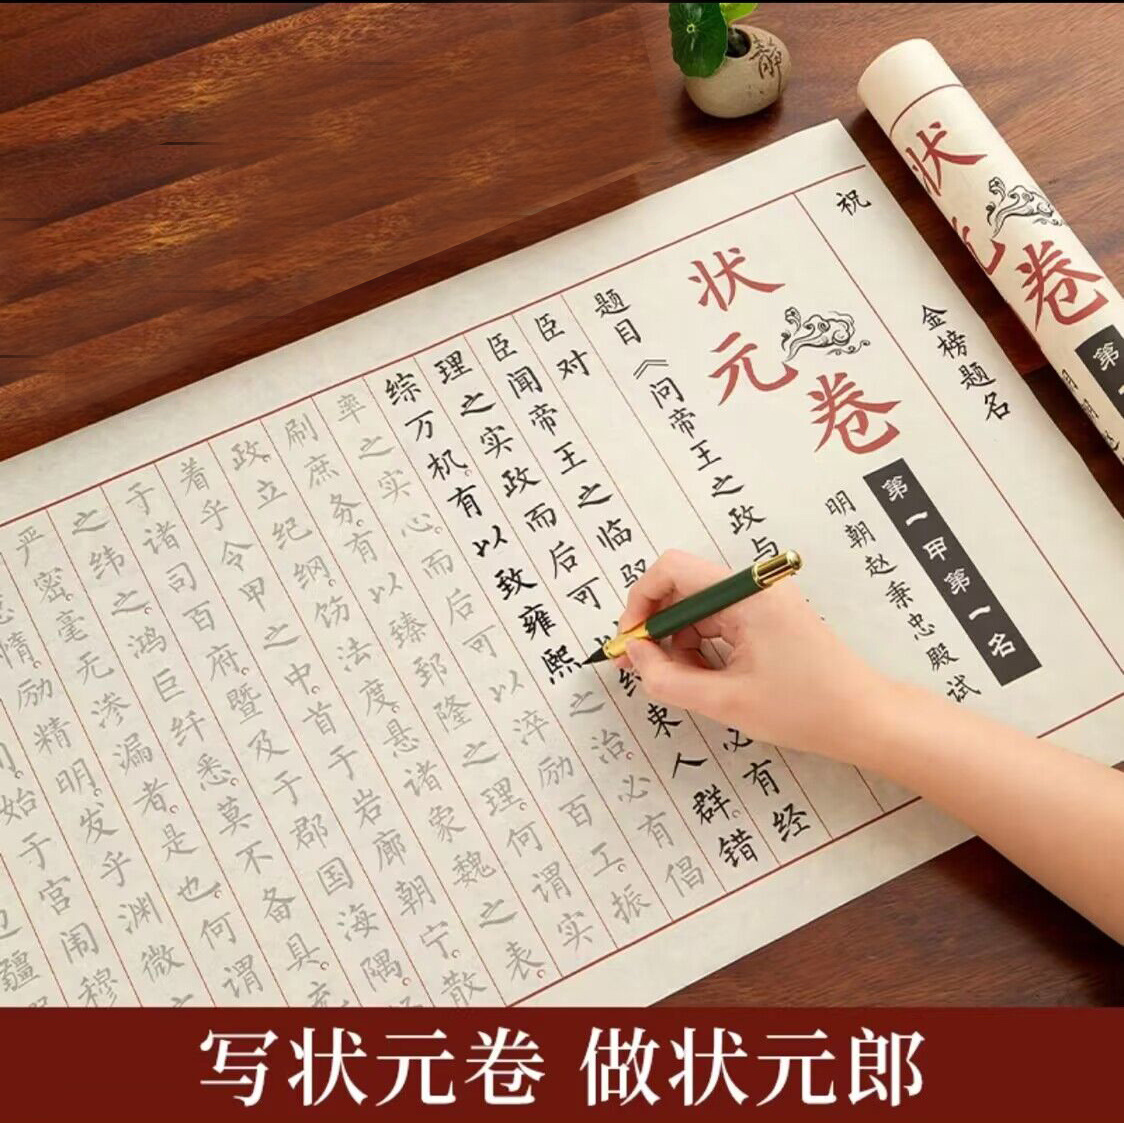 祝
金榜题名
状元卷
第一甲第一名
明朝赵秉忠殿试
题目《问帝王之政与
臣对
臣闻帝王之临驭必有经
理之实政而后可约束人群。错
综万机。有以致雍熙之治。必有倡
率之实心。而后可以淬励百工振
刷庶务。有以臻郅隆之理。何谓实
政。立纪纲。饬法度。悬诸象魏之表。
着乎令甲之中。首于岩廊朝宁。散
于诸司百府。暨及于郡国海隅。
之纬之。鸿巨纤悉。莫不备具。充
严密。毫无渗漏者。是也。何谓
情。励精明。发乎渊微
始于宫闱穆
疆
状元卷
第一
写状元卷 做状元郎